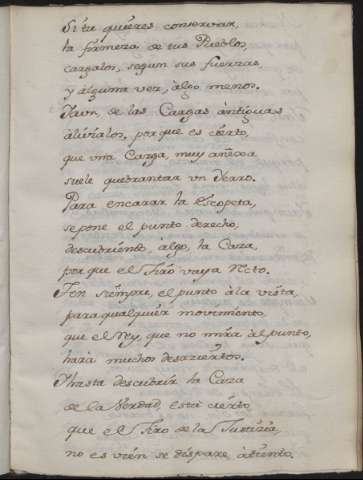 Si tu quieres conservar,
la firmeza de tus Pueblos,
cargalos, segun sus fuerzas,
y alguna vez, algo menos.
Y aun, de las Cargas antiguas
alivialos, porque es cierto,
que vna Carga, muy añeja
suele quebrantar vn Yerro.
Para encarar la Escopeta,
se pone el punto derecho,
descubriendo, algo, la Caza,
porque el Tiro vaya Recto.
Ten siempre, el punto à la vista,
para qualquier movimiento,
que el Rey, que no mira al punto,
hará muchos desaziertos.
Y hasta descubrir la Caza
de la Verdad, està cierto,
que el Tiro de la Justizia,
no es vien se dispare, à tiento.